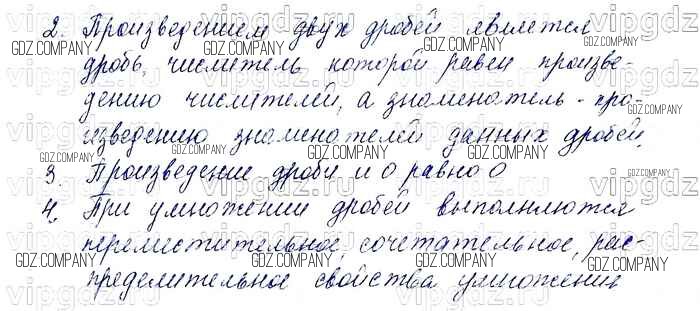 2. Произведением двух дробей является
дробь, числитель которой равен произве-
дению числителей, а знаменатель - про-
изведению знаменателей данных дробей.
3. Произведение дроби и 0 равно 0
4. При умножении дробей выполняются
переместительное, сочетательное, рас-
пределительное свойства умножения